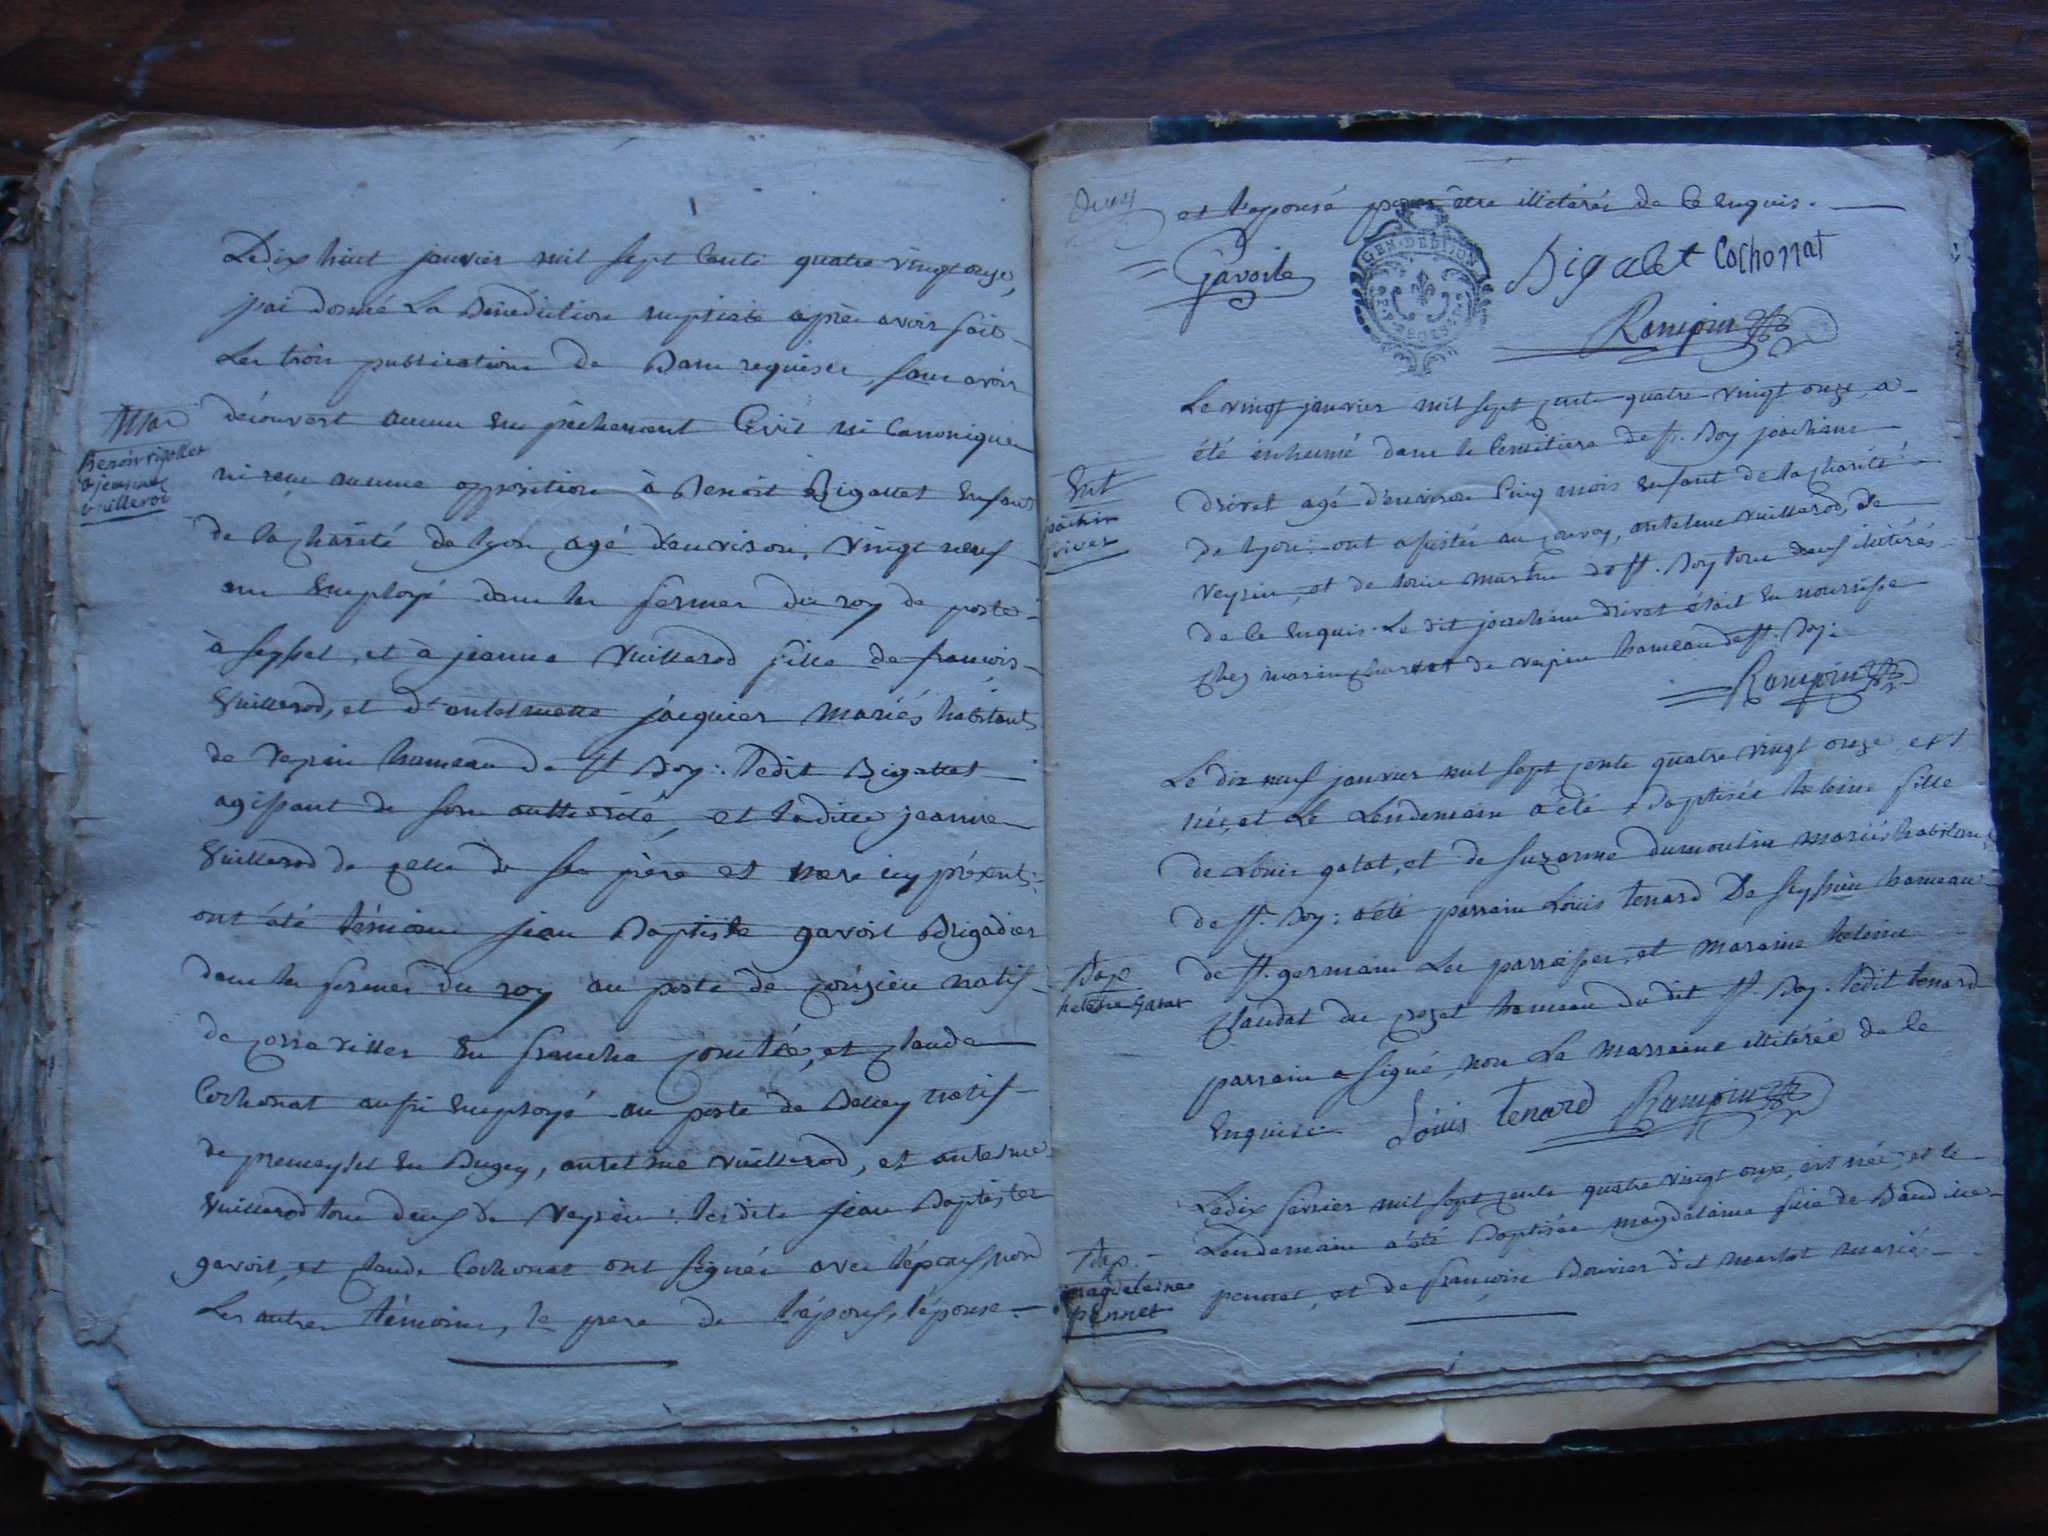 Le dix huit janvier mil sept cents quatre vingt onze,
j'ai donné La Bénédiction nuptiale après avoir fait
Les trois publications de Banc requises, sans avoir
découvert aucun empêchement Civil ni Canonique
ni reçu aucune opposition à Benoit Bigallet enfant
de la charité de lyon, agé d'environ, vingt neuf
ans Employé dans les fermes du roy de poste
à seyssel, et à jeanne Vuillerod fille de françois
Vuillerod, et d'antelmette jacquier mariés habitants
de veyrin hameau de St Boy: ledit Bigallet
agissant de son authorité, et ladite jeanne
Vuillerod de celle de ses père et mere icy présents:
ont été témoins jean Baptiste gavoit Brigadier
dans les fermes du roy au poste de natif
de en franche comté, et claude
Cochonat aussi Employé au poste de Belley natif
de premeyssel en Bugey, antelme vuillerod, et antelme
Vuillerod tous deux de Veyrin: lesdits jean Baptiste
gavoit, et claude Cochonat ont signés avec l'époux, non
Les autres témoins, le pere de l'épouse, l'épouse
Mar
Benoit rigollet
a jeanne
vuillerod
et l'épouse pour être illitérés de ce Enquis.
GEN. DE DIJON
Gavoite Bigalet Cochonat
Rampin
Le vingt janvier mil sept cents quatre vingt onze, a
été enhumé dans le Cemetiere de St. Boy joachim
drivet agé d'environ Cinq mois enfant de la charité
de lyon: ont assistés au convoy, antelme vuillerod, de
veyrin, et de St. Boy tous deux illitérés
de ce Enquis. Le dit joachim drivet était en nourrisse
chez marin de veyrin hameau de St. Boy:
Rampin
Ent
joachim
drivet
Le dix neuf janvier mil sept cents quatre vingt onze est
née, et Le Lendemain a été Baptisée heleine fille
de Louis galat, et de suzanne dumoulin mariés habitants
de St. Boy: a été parrain Louis tenard De seyssieu hameau
de St. germain Les parroisses, et maraine heleine
claudat du hameau du dit St. Boy. ledit tenard
parrain a signé, non La marraine illitérée de ce
Enquise. Louis tenard Rampin
Bap
heleine galat
Le dix fevrier mil sept cents quatre vingt onze, est née, et le
Lendemain a été Baptisée magdelaine fille de
pennet, et de françoise Bouvier dit marlot mariés
Bap.
magdeleine
pennet